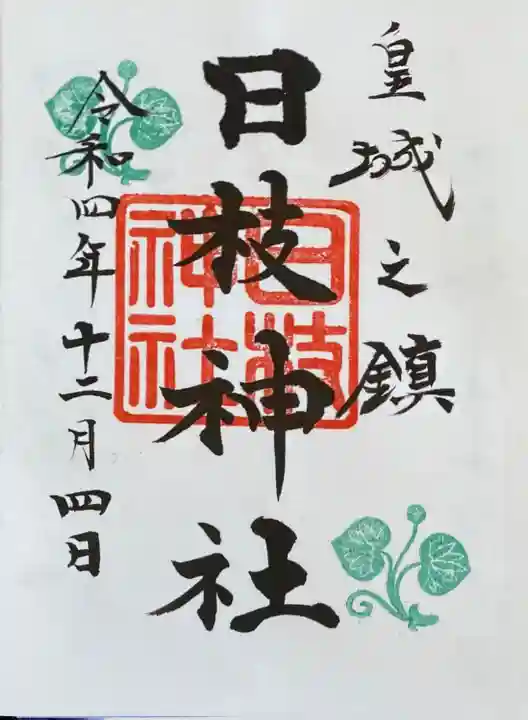 皇城之鎮
日枝神社
日枝神社
令和四年十二月四日